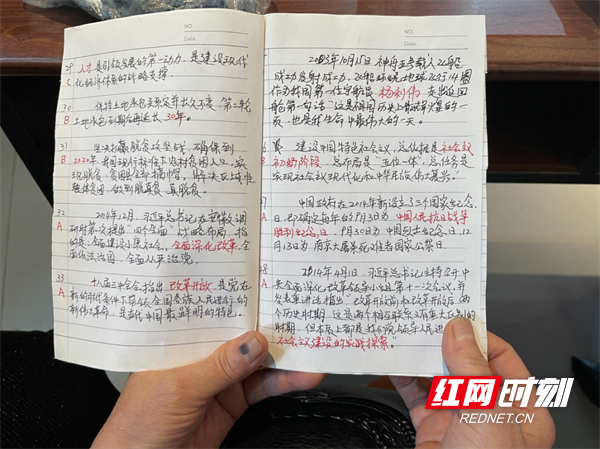 NO.
Date.
29 人才是引领发展的第一动力,是建设现代
C 化经济体系的战略支撑。
30 保持土地承包关系稳定并长久不变,第二轮
B 土地承包到期后再延长30年。
31 坚决打赢脱贫攻坚战,确保到
B 2020年我国现行标准下农村贫困人口,实
现脱贫,贫困县全部摘帽,解决区域性
整体贫困,做到脱真贫、真脱贫。
32 2014年12月,习近平总书记在江苏调
A 研时第一次提出“四个全面”战略布局,指
的是:全面建成小康社会,全面深化改革,全
面依法治国,全面从严治党。
33 十八届三中全会指出:改革开放,是党在
A 新的时代条件下带领全国各族人民进行的
新伟大革命,是当代中国最鲜明的特色。
NO.
Date.
2003年10月15日神舟五号载人飞船
成功发射成功,飞船环绕地球飞行14圈
作为我国第一位宇航员 杨利伟 走出返回
舱第一句话“这是祖国历史上最辉煌的一
页,也是我生命中最伟大的一天。
6 建设中国特色社会主义,总依据是社会主义
B 初级阶段,总布局是“五位一体”,总任务是
实现社会主义现代化和中华民族伟大复兴。”
7 中国政府在2014年新设立三个国家纪念
日,即确定每年的9月3日为 中国人民抗日战争
胜利纪念日,9月30日为中国烈士纪念日,12
月13日为南京大屠杀死难者国家公祭日。
8 2014年4月1日,习近平总书记主持召开中
A 央全面深化改革领导小组第十一次会议,并
发表重讲话指出:“改革开放前和改革开放后两
个历史时期,这是两个相互联系又有重大区别的
时期,但本质上都是我们党领导人民进行
社会主义建设的实践探索。”
红网时刻
REDNET.CN